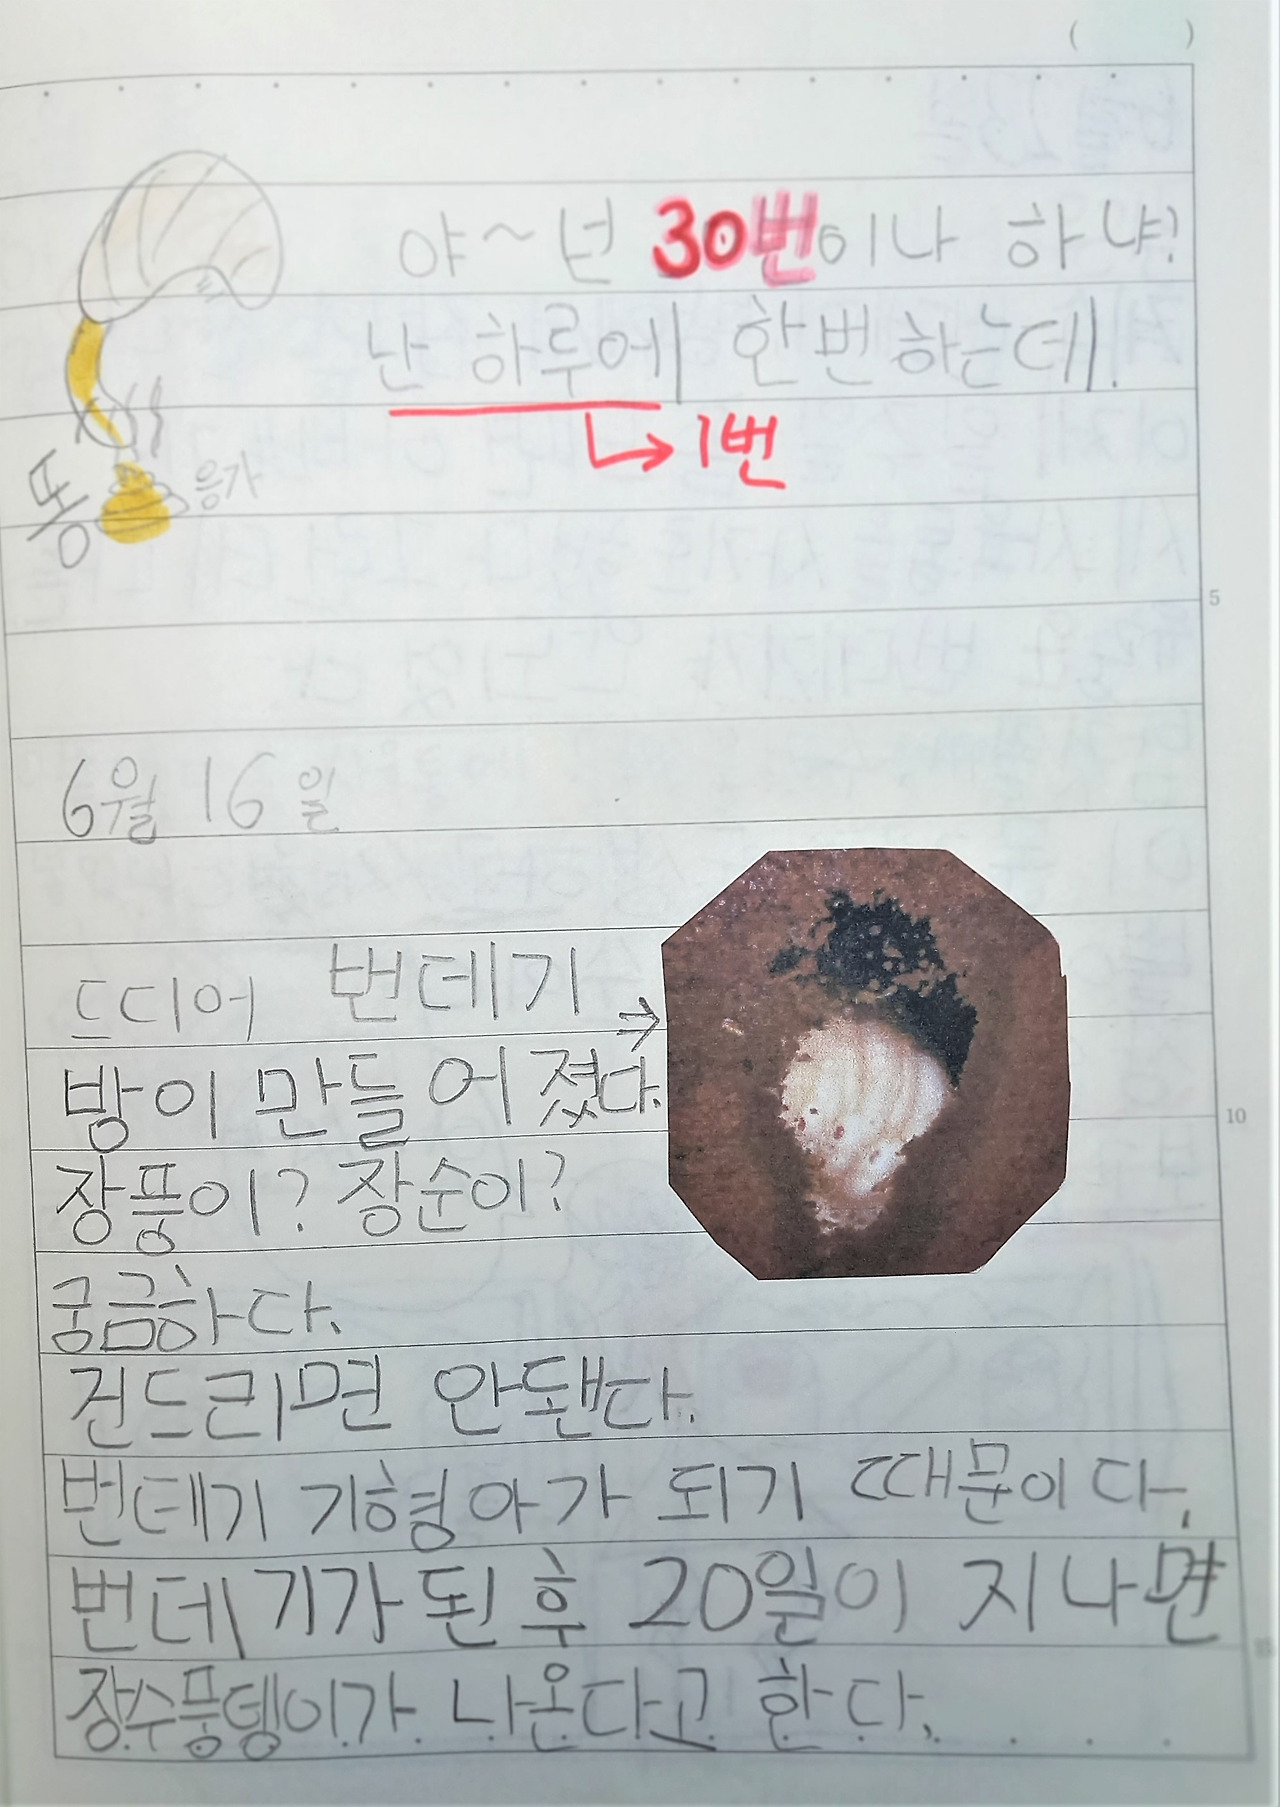 ( )
야~ 넌 30번이나 하냐?
난 하루에 한번하는데.
1번
똥
응가
5
6월 16일
드디어 번데기
방이 만들어졌다.
10
장풍이? 장순이?
궁금하다.
건드리면 안됀다.
번테기 기형아가 되기 때문이다.
번데기가 된 후 20일이 지나면
15
장수풍뎅이가 나온다고 한다.